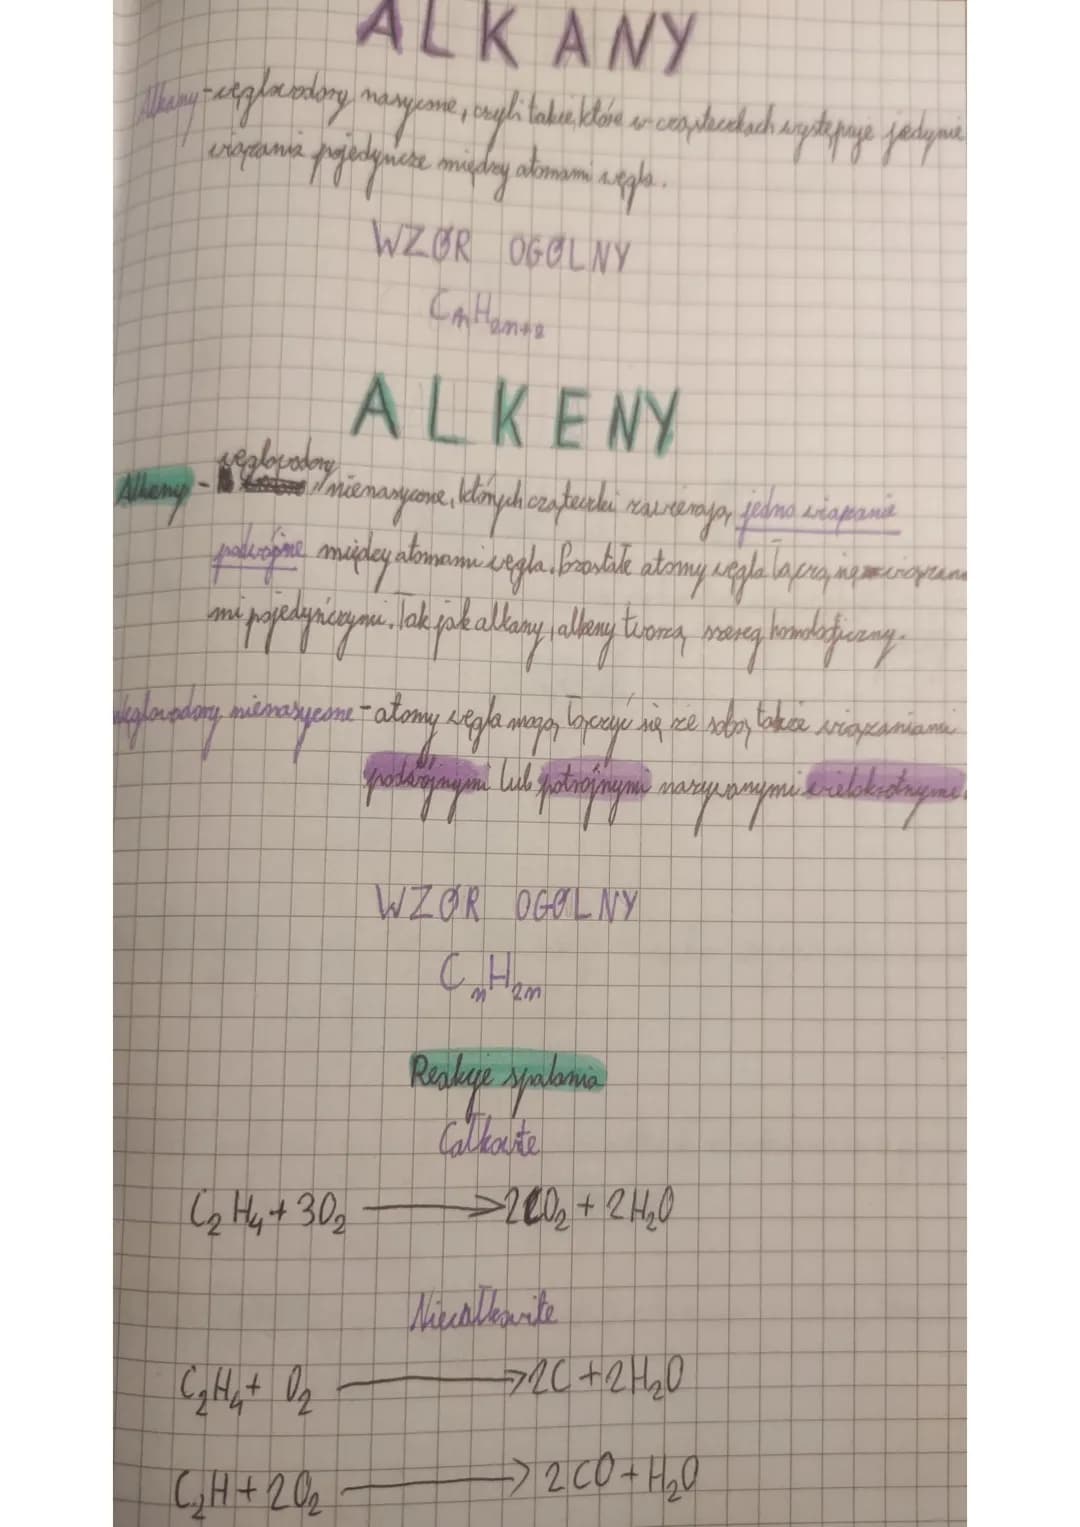 ALKANY
Alkany - węglowodory nasycone, czyli takie, które w cząsteczkach występuje jedynie
wiązania pojedyncze między atomami węgla.
WZÓR OGÓLNY
CnH2n+2
ALKENY
węglowodory
Alkeny - nienasycone, których cząsteczki zawierają jedno wiązanie
podwójne między atomami węgla. Pozostałe atomy węgla łączą się wiązania
mi pojedyńczymi. Tak jak alkany, alkeny tworzą szereg homologiczny.
Węglowodory nienasycone - atomy węgla mogą łączyć się ze sobą także wiązaniami
podwójnymi lub potrójnymi nazywanymi wielokrotnymi.
WZÓR OGÓLNY
CnH2n
Reakcje spalania
Całkowite
C₂H₄ + 3O₂ → 2CO₂ + 2H₂O
Niecałkowite
C₂H₄ + O₂ → 2C + 2H₂O
C₂H + 2O₂ → 2CO + H₂O